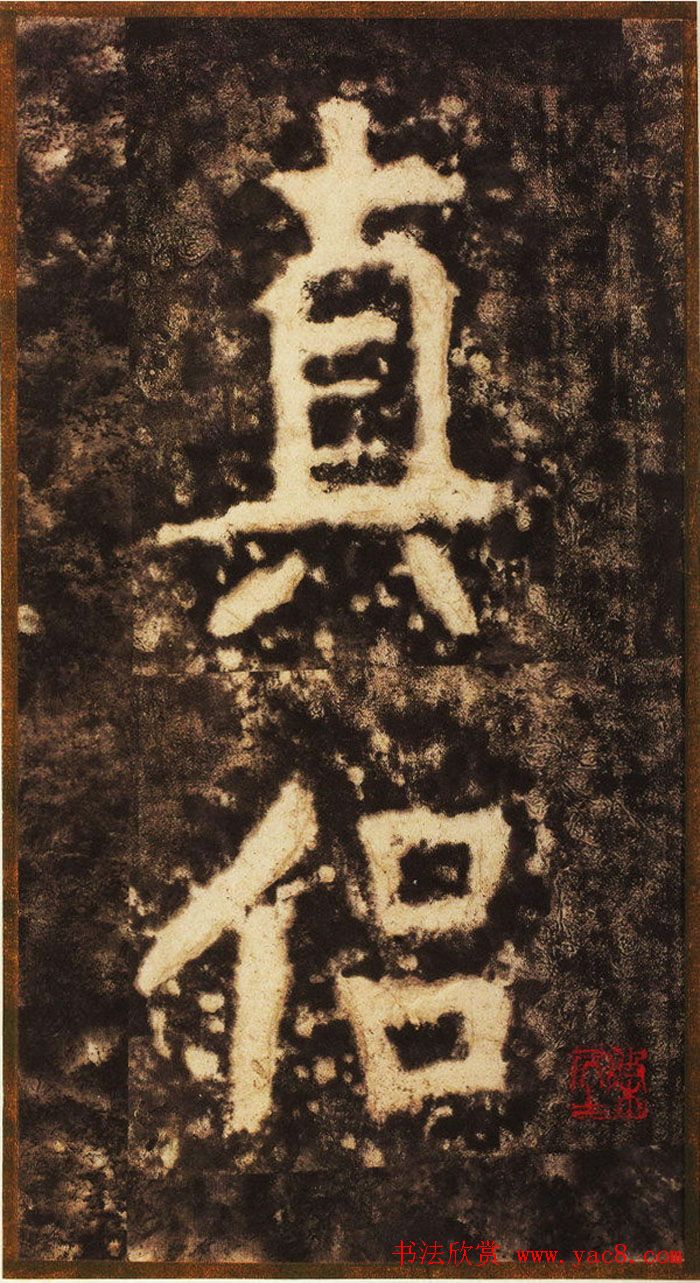 真
侶
书法欣赏 www.yac8.com